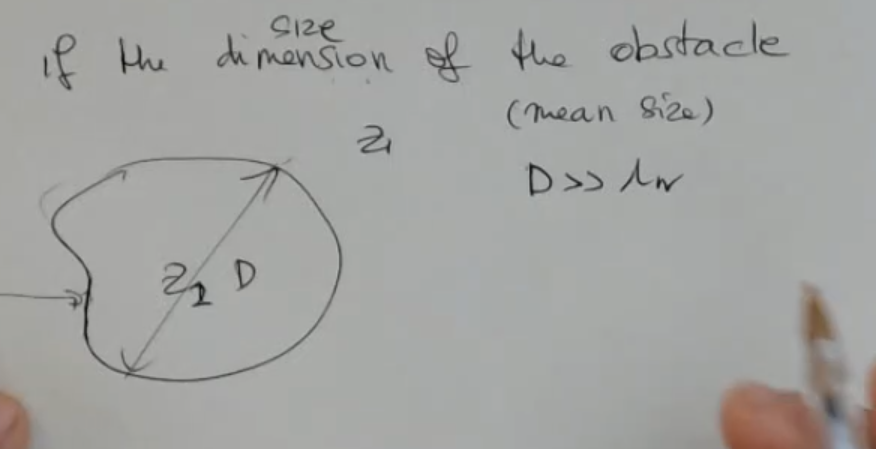 size
if the dimension of the obstacle
(mean size)
Z₁
D >> λw
Z₂ D